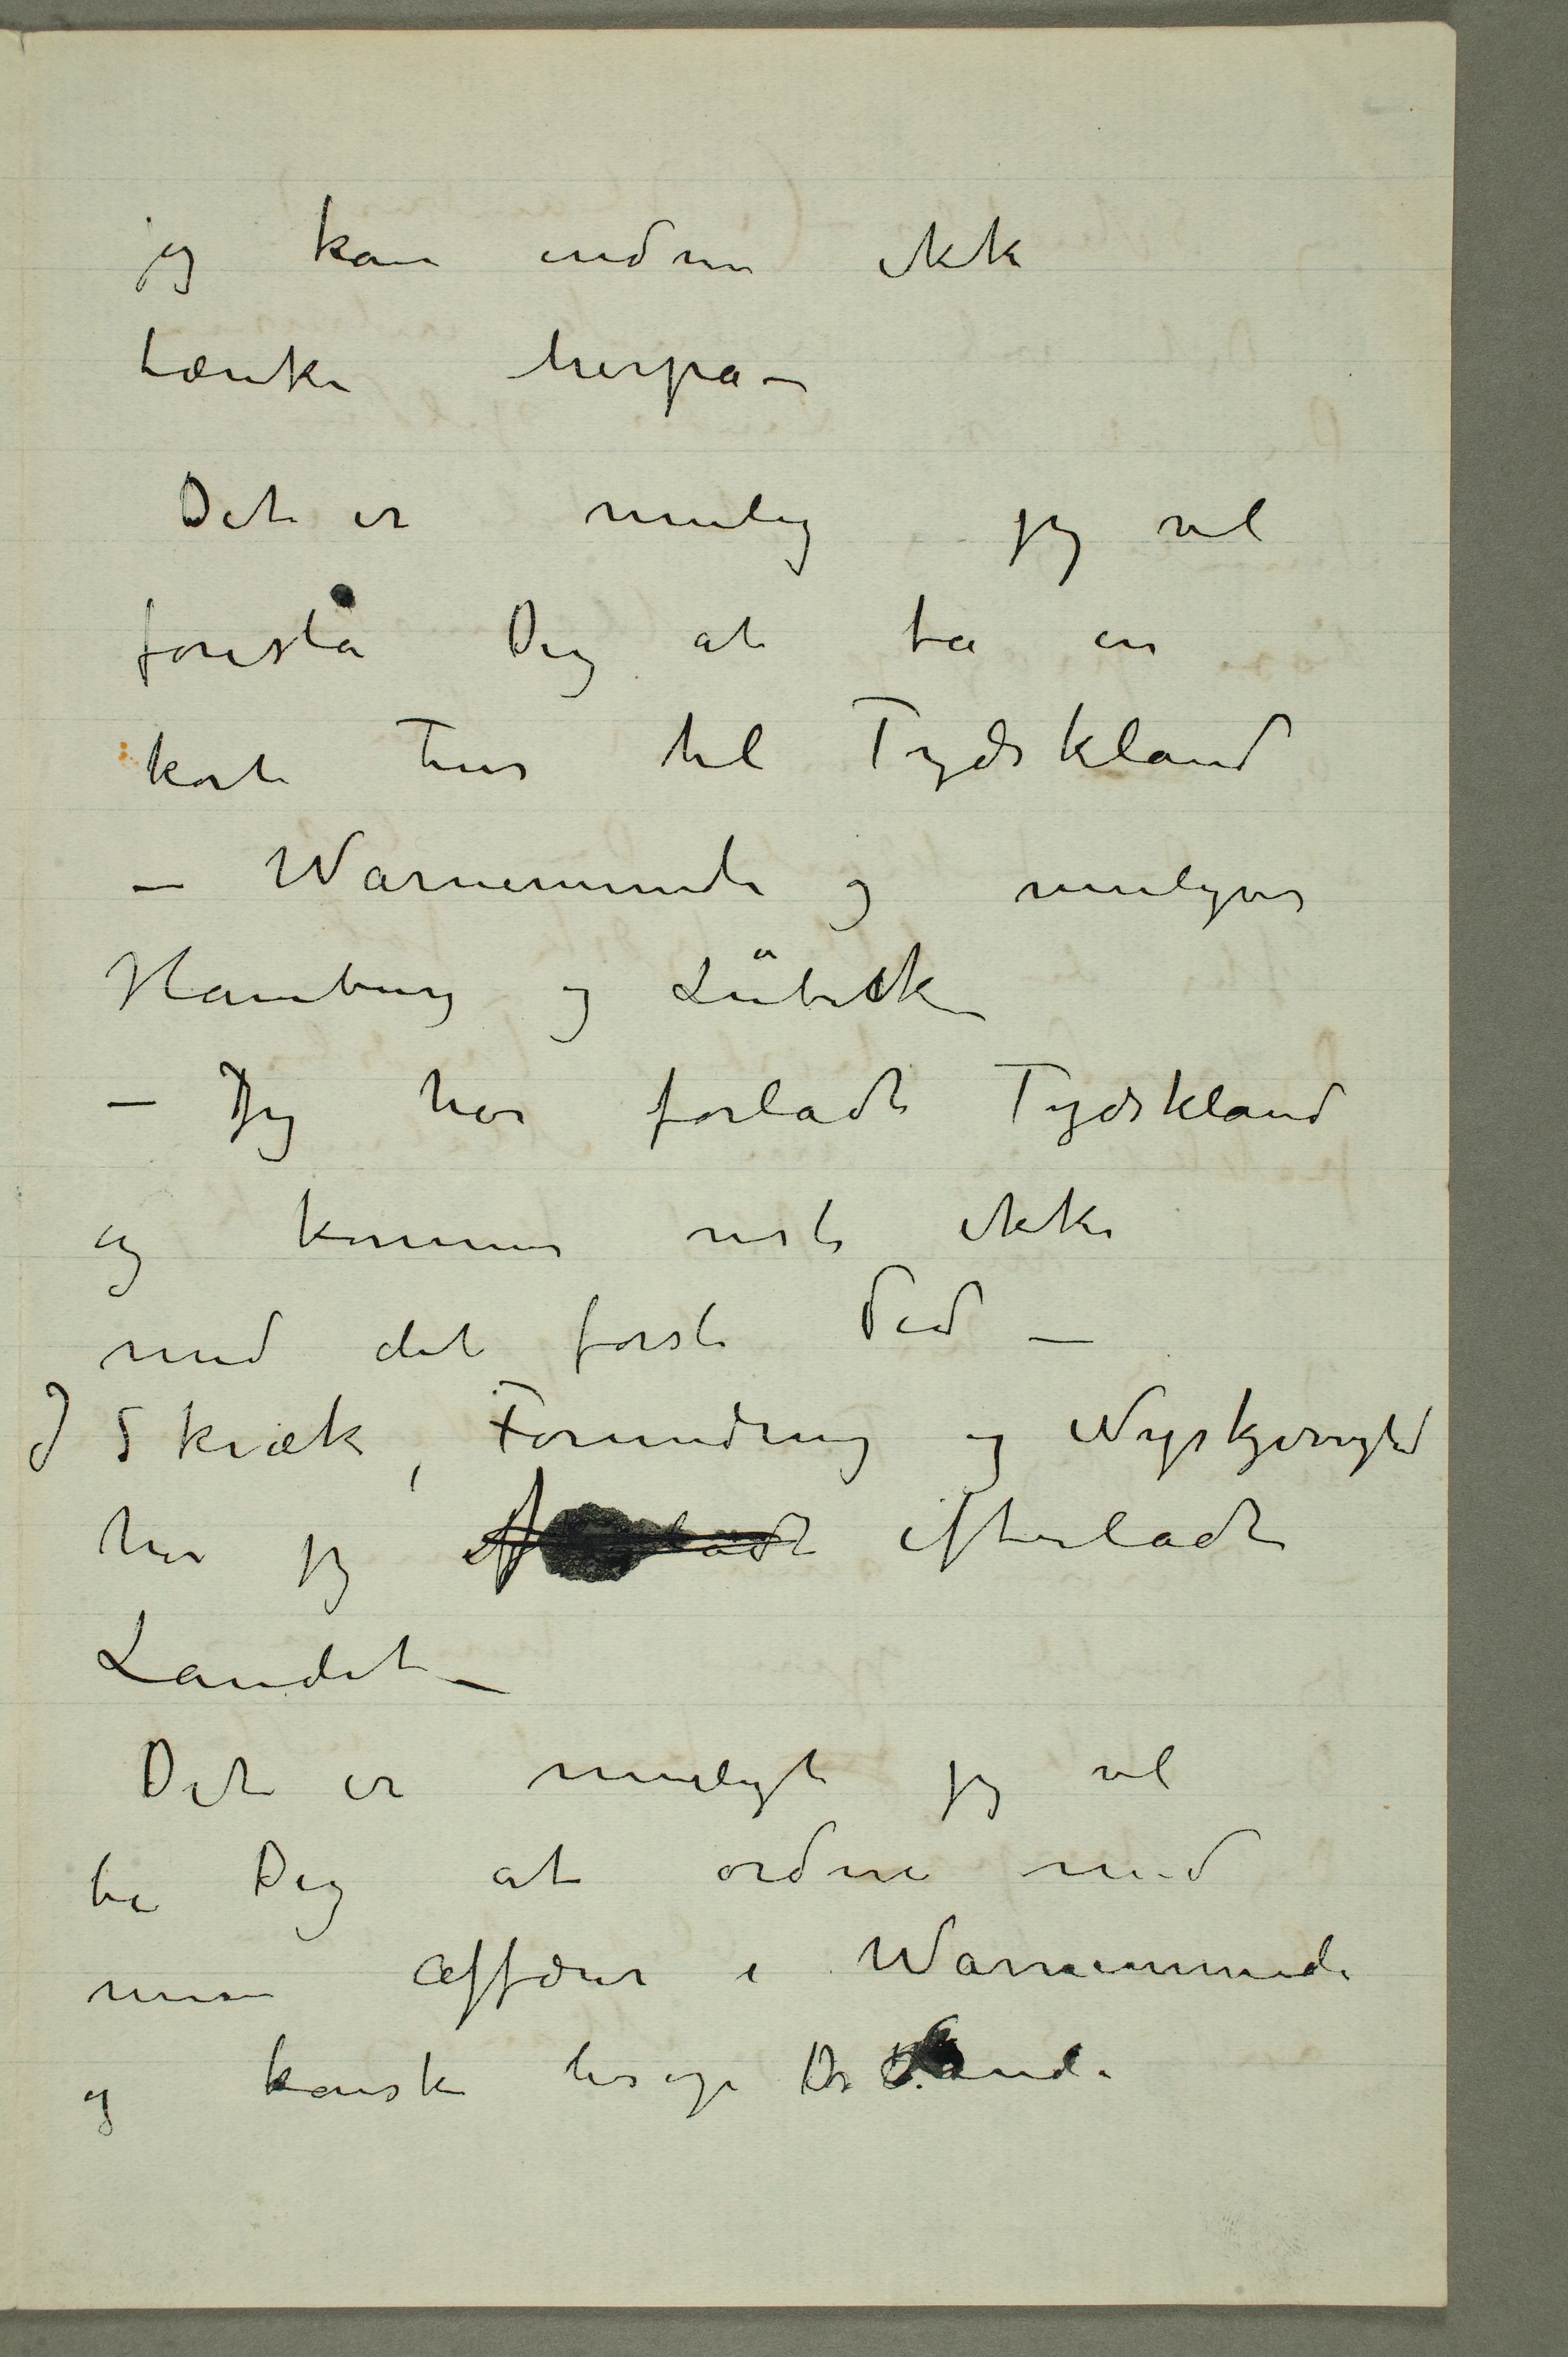 jeg kan endnu ikke
tænke herpå –
Det er mulig jeg vil
foreslå Dig at ta en
kort Tur til Tydskland
– Warnemünde og muligens
Hamburg og Lübeck –
– Jeg har forladt Tydskland
og kommer nok ikke
med det første did –
I Skræk, Forundring og Nyskjerrighed
har jeg efterladt efterladt
Landet –
Det er muligt jeg vil
be Dig at ordne med
mine Affærer i Warnemünde
og kanske besøge Dr Linde